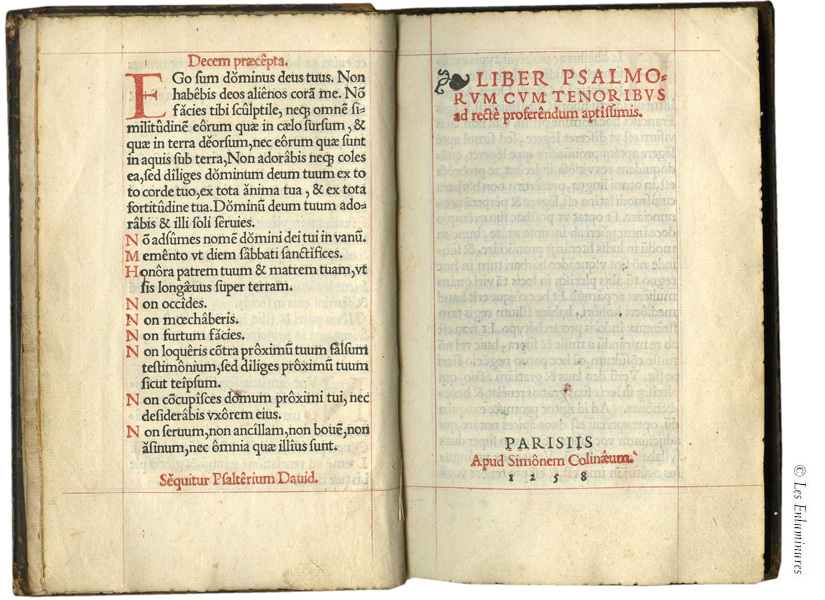 Decem præcépta.
EGo sum dóminus deus tuus. Non
habébis deos aliénos corā me. Nō
fácies tibi scúlptile, neq; omnē si-
militúdinē eórum quæ in cælo sursum, &
quæ in terra deórsum, nec eórum quæ sunt
in aquis sub terra, Non adorábis neq; coles
ea, sed díliges dóminum deum tuum ex to
to corde tuo, ex tota ánima tua, & ex tota
fortitúdine tua. Dóminū deum tuum ado-
rábis & illi soli séruies.
Nō adsúmes nomē dómini dei tui in vanū.
Memēnto vt diem sábbati sanctífices.
Honóra patrem tuum & matrem tuam, vt
sis longǽuus super terram.
Non occídes.
Non mœchāberis.
Non furtum fácies.
Non loquéris cōtra próximū tuum falsum
testimónium, sed díliges próximum tuum
sicut teípsum.
Non cōcupísces domum próximi tui, nec
desiderábis vxórem eius.
Non seruum, non ancíllam, non bouē, non
ásinum, nec ómnia quæ illíus sunt.
Séquitur Psaltérium Dauid.
LIBER PSALMO-
RVM CVM TENORIBVS
ad rectè proferéndum aptíssimis.
PARISIIS
Apud Simónem Colinǽum.
1 2 5 8
© Les Enluminures